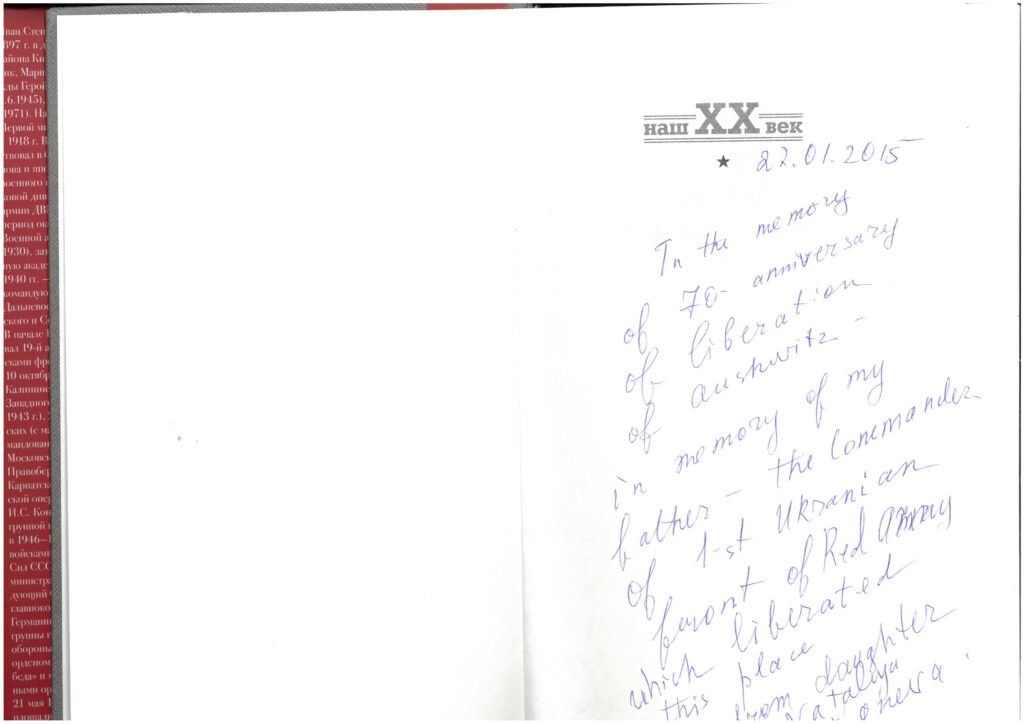 ван Сте
897 г. в д
айона Ки
ик, Мари
ды Герой
.6.1945),
1971). На
Первой ми
1918 г. В
ствовал в
нова и япо
военного
ковой див
армии ДВ
период ок
Военной а
1930), за
ную акаде
1940 гг. –
командую
Дальнево
ского и С
В начале
вал 19-й а
сками фр
10 октябр
Калининс
Западного
1943 г.),
ских (с м
мандован
Московс
Правобер
Карпатск
ской опер
И.С. Кон
группой
в 1946–1
войсками
Сил ССС
министра
дующий
главноко
Германи
группы
обороны
орденом
беда» и
ными ор
21 мая 1
площад
наш XX век
★ 22.01.2015
In the memory
of 70- anniversary
of liberation
of aushwitz -
in memory of my
father - the Commander
of 1-st Ukranian
front of Red Army
which liberated
this place
from daughter
Natalya